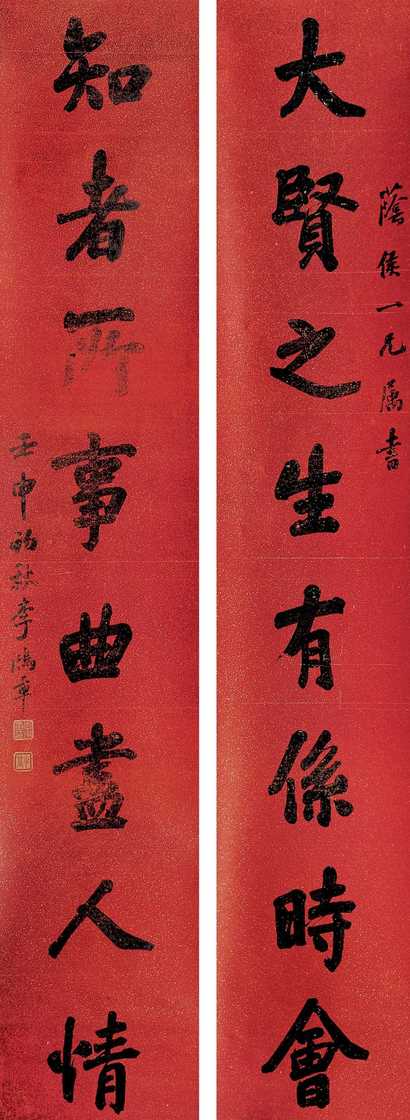 蔭侯一兄屬書
大賢之生有係時會
知者所事曲盡人情
壬申初秋李鴻章